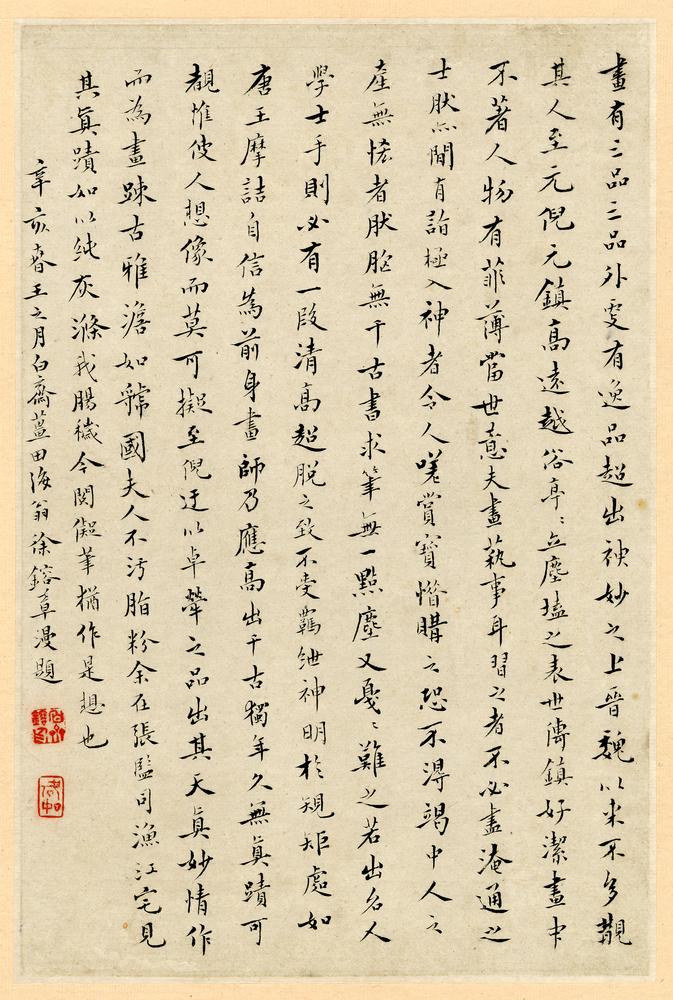 畫有三品三品外更有逸品超出神妙之上晉魏以來不多覯
其人至元倪元鎮高遠越俗亭〻立塵壒之表世傳鎮好潔畫中
不著人物有菲薄當世意夫畫蓺事耳習之者不必盡淹通之
士肰亦間有詣極入神者令人嘆賞寶惜購之恐不得竭中人之
產無恡者肰胸無千古書求筆無一點塵又戞〻難之若出名人
學士手則必有一段清高超脫之致不受羈紲神明於規矩處如
唐王摩詰自信為前身畫師乃應高出千古獨年久無眞蹟可
覩惟使人想像而莫可擬至倪迂以卓犖之品出其天眞妙情作
而為畫踈古雅澹如虢國夫人不汚脂粉余在張監司漁江宅見
其眞蹟如以純灰滌我腸穢今閱儗筆猶作是想也
辛亥春王之月白齋薑田海翁徐鎔章漫題